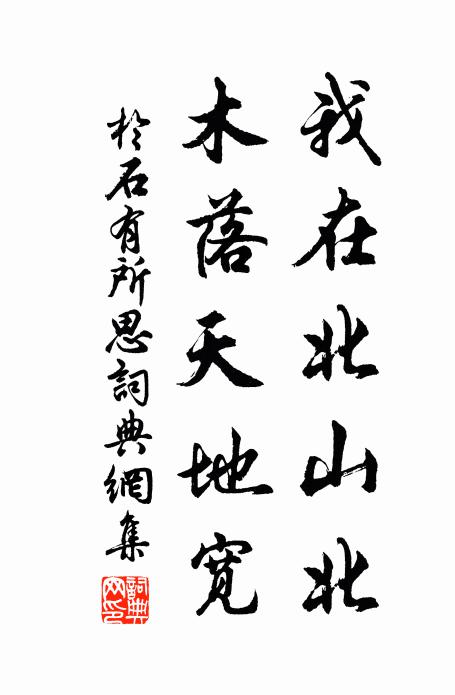 我在北山北
木落天地寬
於石有所思詞典網集
詞典
网印